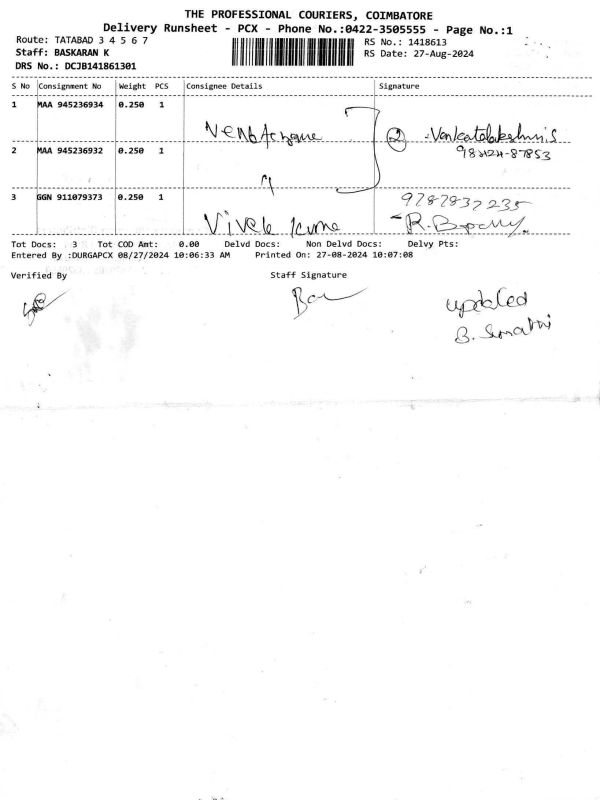 THE PROFESSIONAL COURIERS, COIMBATORE
Delivery Runsheet - PCX - Phone No.:0422-3505555 - Page No.:1
Route: TATABAD 3 4 5 6 7
RS No.: 1418613
Staff: BASKARAN K
RS Date: 27-Aug-2024
DRS No.: DCJB141861301
S No Consignment No Weight PCS Consignee Details Signature
1 MAA 945236934 0.250 1
② Venkatalakshmi.S
2 MAA 945236932 0.250 1
3 GGN 911079373 0.250 1
9787837235
Tot Docs: 3 Tot COD Amt: 0.00 Delvd Docs: Non Delvd Docs: Delvy Pts:
Entered By :DURGAPCX 08/27/2024 10:06:33 AM Printed On: 27-08-2024 10:07:08
Verified By Staff Signature
updated